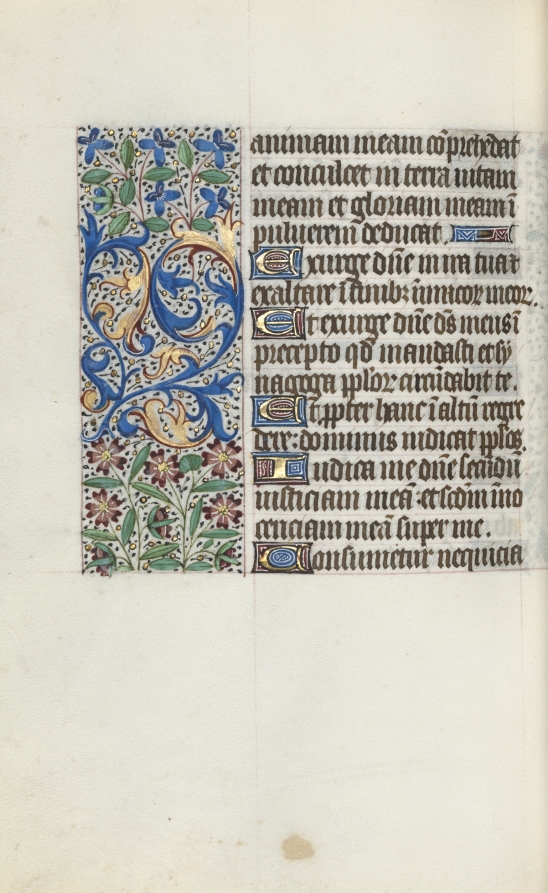 animam meam cõprehẽdat
et conculcet in terra uitam
meam et gloriam meam ĩ
puluerem deducat.
Exurge dñe in ira tua ꝛ
exaltare ĩ finibꝫ inimicoꝝ meoꝝ.
Et exurge dñe ds̃ meus ĩ
precepto qd̃ mandasti et sy
nagoga pp̃loꝝ circũdabit te.
Et ꝓpter hanc ĩ altũ regre
dere: dominus iudicat pp̃los.
Iudica me dñe secũdũ
iusticiam meã: et scdm̃ inno
cenciam meã super me.
Consumetur nequicia